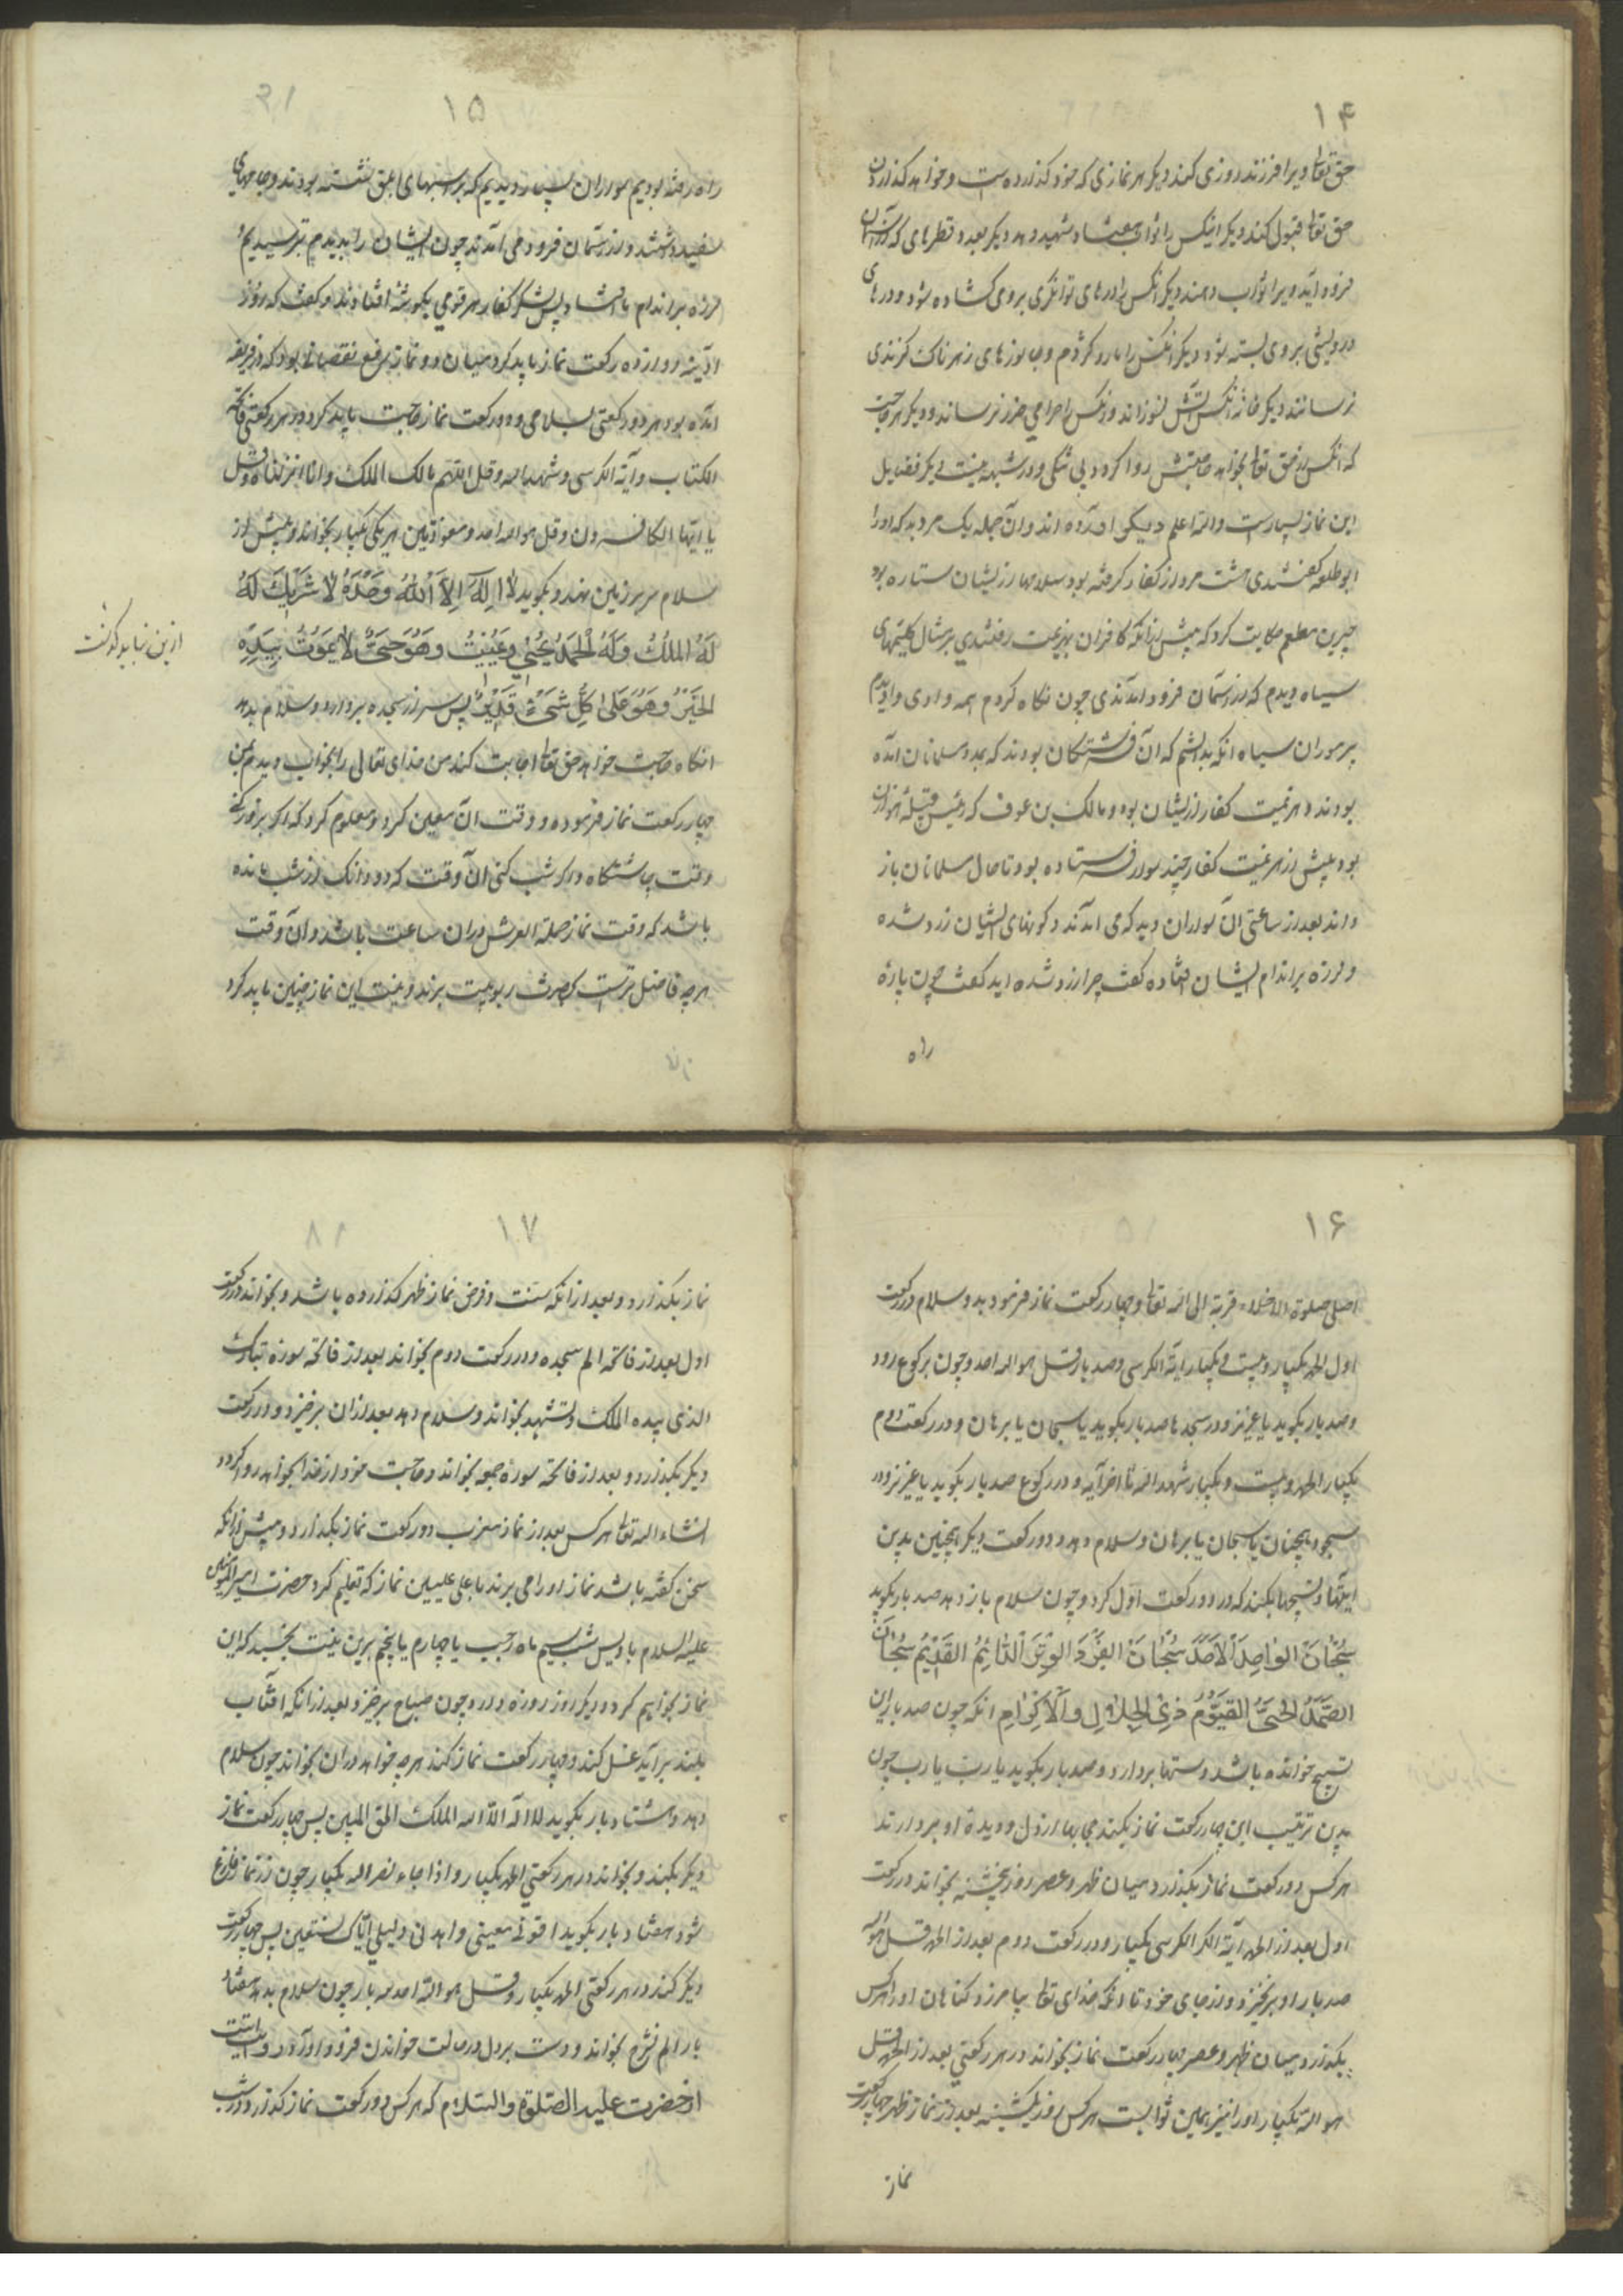 ۱۴
حق تعالی ویرا فرزند روزی کند دیگر هر نمازی که خود گذارده است و خواهد گذاردن
حق تعالی قبول کند دیگر آنکس را ثواب هفتاد شهید دهد دیگر بعدد قطرهای که از آسمان
فرود آید ویرا ثواب دهند دیگر آنکس را درهای توانگری بروی گشاده شود و درهای
درویشی بروی بسته شود دیگر آنکس را مار و کژدم و جانورهای زهرناک گزندی
نرسانند دیگر خانه آنکس آتش نسوزاند و آنکس را حرامی ضرر نرساند و دیگر هر حاجت
که آنکس از حق تعالی بخواهد حاجتش روا گردد بی شکی و در شبهه نیست دیگر فضایل
این نماز بسیارست والله اعلم دیگر آورده اند و از آن جمله یک مرد بد که او را
ابو طلعه گفتندی هشت مرد از کفار گرفته بود سلاحها از ایشان ستاره بود
جبیر بن مطعم حکایت کرد که پیش از آنکه کافران بهزیمت رفتندی بر مثال گلیمهای
سیاه دیدم که از آسمان فرود آمدندی چون نگاه کردم همه وادی را دیدم
پر موران سیاه آنگه بدانستم که آن فرشتگان بودند که بمدد مسلمانان آمده
بودند و هزیمت کفار از ایشان بود و مالک بن عوف که رئیس قبیلهٔ هوازن
بود پیش از هزیمت کفار چند سوار فرستاده بود تا حال مسلمانان باز
داند بعد از ساعتی آن سواران دید که می آمدند و گونهای ایشان زرد شده
و لرزه بر اندام ایشان افتاده گفت چرا زرد شده اید گفتند چون پارهٔ
راه
۱۵
راه رفته بودیم سواران بسیار دیدیم که بر اسبهای ابلق نشسته بودند و جامهای
سفید داشتند و از آسمان فرود می آمدند چون ایشان را بدیدیم بترسیدیم
لرزه بر اندام ما افتاد پس لشکر کفار هر قومی بگوشهٔ افتادند و گفت که روز
آدینه دوازده رکعت نماز باید کرد میان دو نماز برفع نقصانها بود که در فریضه
آمده بود هر دو رکعتی بسلامی و دو رکعت نماز حاجت باید کرد و در هر رکعتی فاتحة
الکتاب و آیة الکرسی و شهدالله و قل اللهم مالک الملک و انا انزلناه و قل
یا ایها الکافرون و قل هو الله احد و معوذتین هر یکی یکبار بخواند و پیش از
سلام سر بر زمین نهد و بگوید لا اِلَهَ اِلاَّ اللهُ وَحْدَهُ لا شَرِیْکَ لَهُ
لَهُ المُلْکُ وَلَهُ الْحَمْدُ یُحْیِیْ وَیُمِیْتُ وَهُوَ حَیٌّ لا یَمُوْتُ بِیَدِهِ
الْخَیْرُ وَهُوَ عَلَی کُلِّ شَیْءٍ قَدِیْرٌ پس سر از سجده بردارد و سلام بدهد
آنگاه حاجت خواهد حق تعالی اجابت کند من خدای تعالی را بخواب دیدم بمن
چهار رکعت نماز فرموده و وقت آن معین کرد و معلوم کرد که اگر بروز کنی
وقت چاشتگاه و اگر شب کنی آن وقت که دو دانگ از شب مانده
باشد که وقت نماز حملة العرش در آن ساعت باشد و آن وقت
هر چه فاضل ترست بحضرت ربوبیت برند و نیت این نماز چنین باید کرد
ازین نباید گذشت
۱۶
اصلی صلوة الاخلاء قربة الی الله تعالی و چهار رکعت نماز فرمود بدو سلام در رکعت
اول الحمد یکبار و بیست و یکبار آیة الکرسی و صد بار قل هو الله احد و چون برکوع رود
و صد بار بگوید یا عزیز و در سجدها صد بار بگوید یا سبحان یا برهان و در رکعت دوم
یکبار الحمد و بیست و یکبار شهد الله تا آخر آیه و در رکوع صد بار بگوید یا عزیز و در
سجود همچنان یا سبحان یا برهان و سلام دهد و دو رکعت دیگر همچنین بدین
آیتها و تسبیحها بکند که در دو رکعت اول کرد و چون سلام باز دهد صد بار بگوید
سُبْحَانَ الواحِدِ الاَحَدِ سُبْحَانَ الفَرْدِ الوِتْرِ الدَّائِمِ القَدِیْمِ سُبْحَانَ
الصَّمَدِ الحَیِّ القَیُّوْمِ ذِی الجَلالِ وَالاِکْرَامِ آنگه چون صد بار این
تسبیح خوانده باشد دستها بردارد و صد بار بگوید یا ربّ یا رب چون
بدین ترتیب این چهار رکعت نماز بکند حجابها از دل و دیدهٔ او بردارند
هر کس دو رکعت نماز بگذارد میان ظهر و عصر روز پنجشنبه بخواند در رکعت
اول بعد از الحمد آیة الکرسی یکبار و در رکعت دوم بعد از الحمد قل هو الله
صد بار او برنخیزد از جای خود تا آنکه خدای تعالی بیامرزد گناهان او را هر کس
بگذارد میان ظهر و عصر چهار رکعت نماز بخواند در هر رکعتی بعد از الحمد قل
هو الله یکبار او را نیز همین ثوابست هر کس روز یکشنبه بعد از نماز ظهر چهار رکعت
نماز
۱۷
نماز بگذارد و بعد از آنکه سنت و فرض نماز ظهر گذارده باشد و بخواند در رکعت
اول بعد از فاتحه الم سجده و در رکعت دوم بخواند بعد از فاتحه سورهٔ تبارک
الذی بیده الملک و تشهد بخواند و سلام دهد بعد از آن برخیزد و دو رکعت
دیگر بگذارد و بعد از فاتحه سورهٔ جمعه بخواند و حاجت خود از خدا بخواهد روا گردد
انشاء الله تعالی هر کس بعد از نماز مغرب دو رکعت نماز بگذارد و پیش از آنکه
سخن گفته باشد نماز او را می برند با علی علیین نماز که تعلیم کرد حضرت امیر المؤمنین
علیه السلام باویس شب سیم ماه رجب یا چهارم یا پنجم برین نیت بخسبد که این
نماز بخواهم کرد و دیگر روز روزه دارد و چون صباح برخیزد بعد از آنکه آفتاب
بلند برآید غسل کند و چهار رکعت نماز کند هر چه خواهد در آن بخواند چون سلام
دهد و هشتاد بار بگوید لا اله الا الله الملک الحق المبین پس چهار رکعت نماز
دیگر بکند و بخواند در هر رکعتی الحمد یکبار و اذا جاء نصر الله یکبار چون از نماز فارغ
شود هفتاد بار بگوید اقوی معینی و اهدنی دلیلی ایّاک نستعین پس چهار رکعت
دیگر کند در هر رکعتی الحمد یکبار و قل هو الله احد سه بار چون سلام بدهد هفتاد
بار الم نشرح بخواند و دست بر دل در حالت خواندن فرود آورد و روایتست
از حضرت علیه الصلوة والسلام که هر کس دو رکعت نماز گذارد در شب